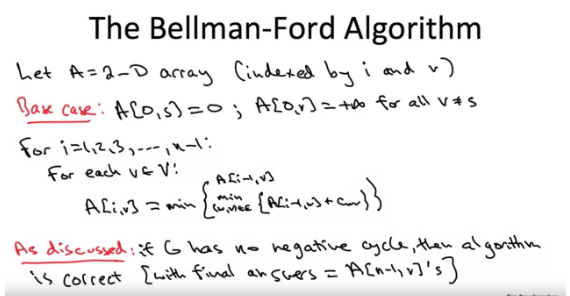 The Bellman-Ford Algorithm
Let A = 2-D array (indexed by i and v)
Base case: A[0,s] = 0 ; A[0,v] = +∞ for all v ≠ s
For i = 1,2,3,...,n-1:
For each v ∈ V:
A[i,v] = min { A[i-1,v]
min (w,v)∈E {A[i-1,w] + Cwv} }
As discussed: if G has no negative cycle, then algorithm
is correct [with final answers = A[n-1,v]'s]